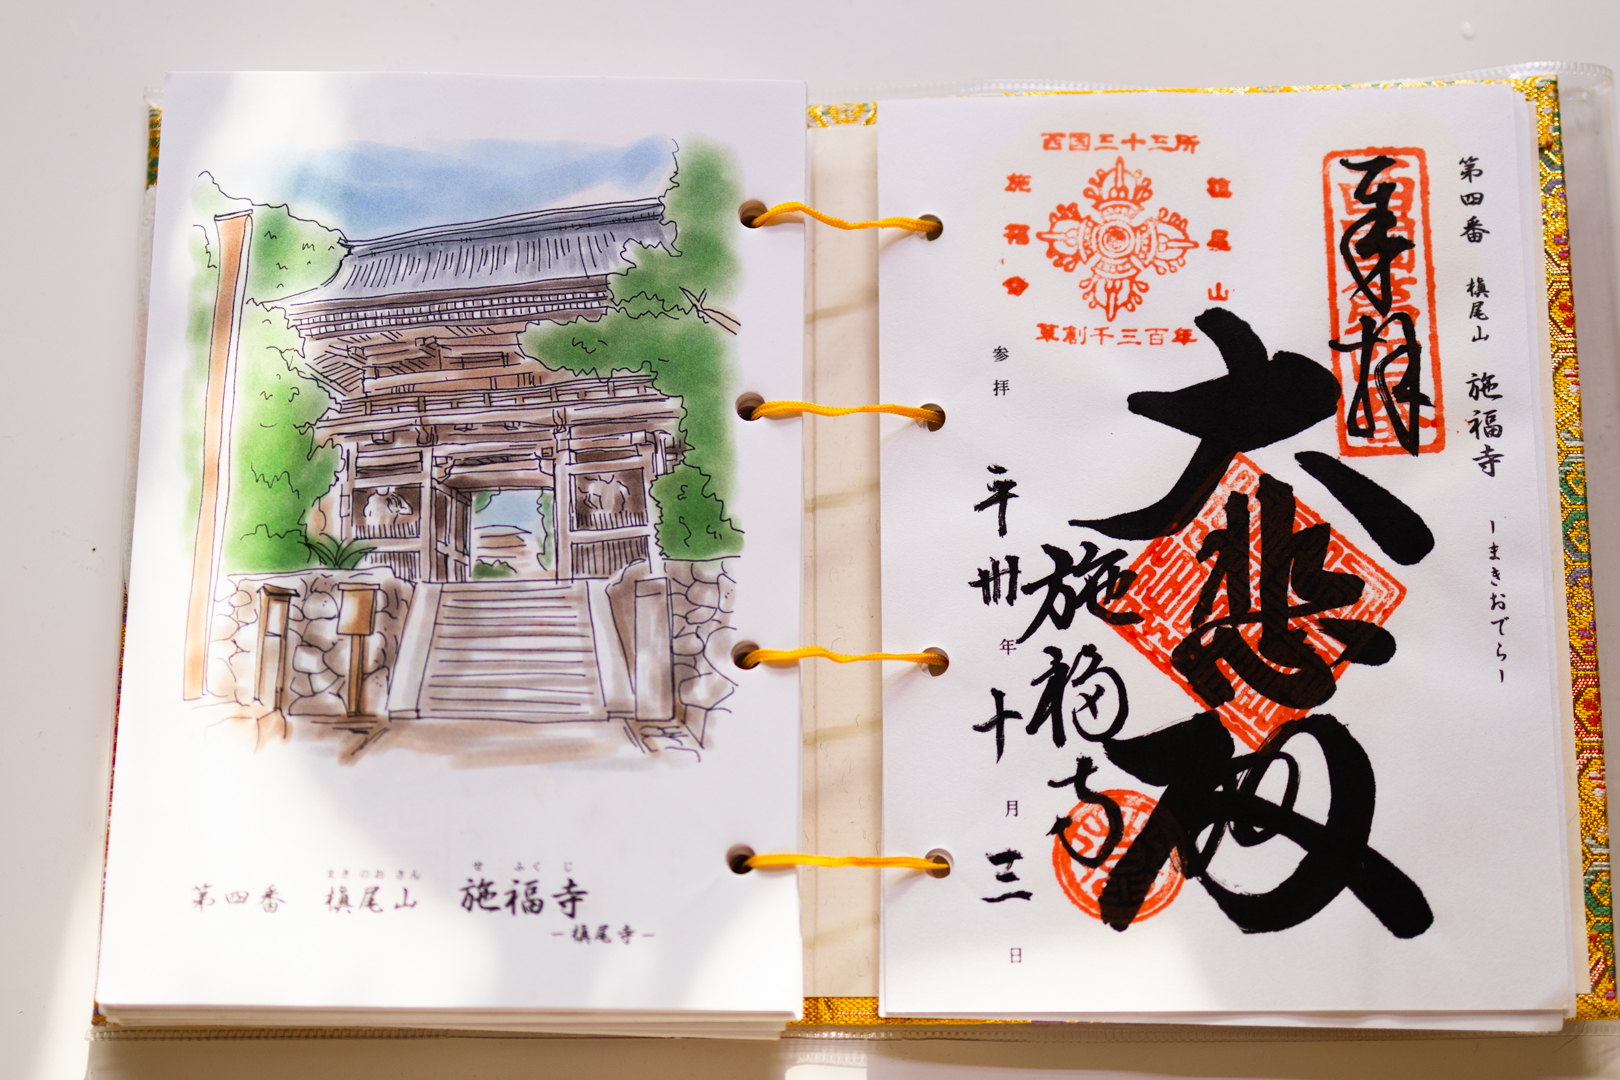 まきのおさん せふくじ
第四番 槇尾山 施福寺
－槇尾寺－
第四番 槇尾山 施福寺 －まきおでら－
奉拝
西国三十三所
槇尾山
施福寺
草創千三百年
大悲殿
施福寺
参拝 平成卅年十月三日